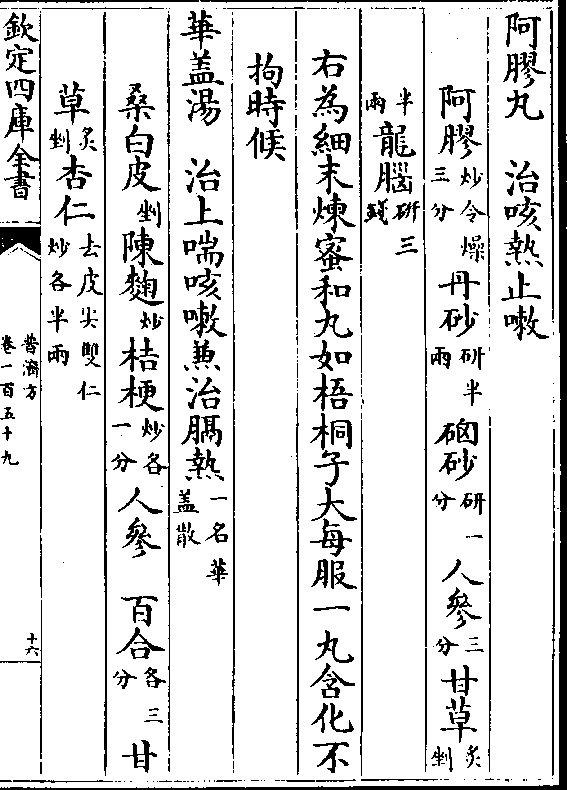 阿膠丸　治咳熱止嗽
阿膠炒令燥三分丹砂研半兩硇砂研一分人參三分甘草炙剉
半兩龍腦研三錢
右為細末煉蜜和丸如梧桐子大每服一丸含化不
拘時候
華盖湯　治上喘咳嗽兼治膈熱一名華盖散
桑白皮剉陳麴炒桔梗炒各一分人參　百合各三分甘
草炙剉杏仁去皮尖雙仁炒各半兩
欽定四庫全書
普濟方
卷一百五十九
十六